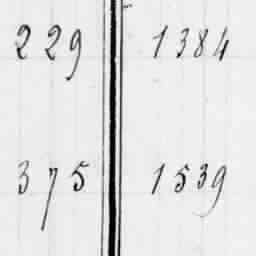 229 1384
375 1539